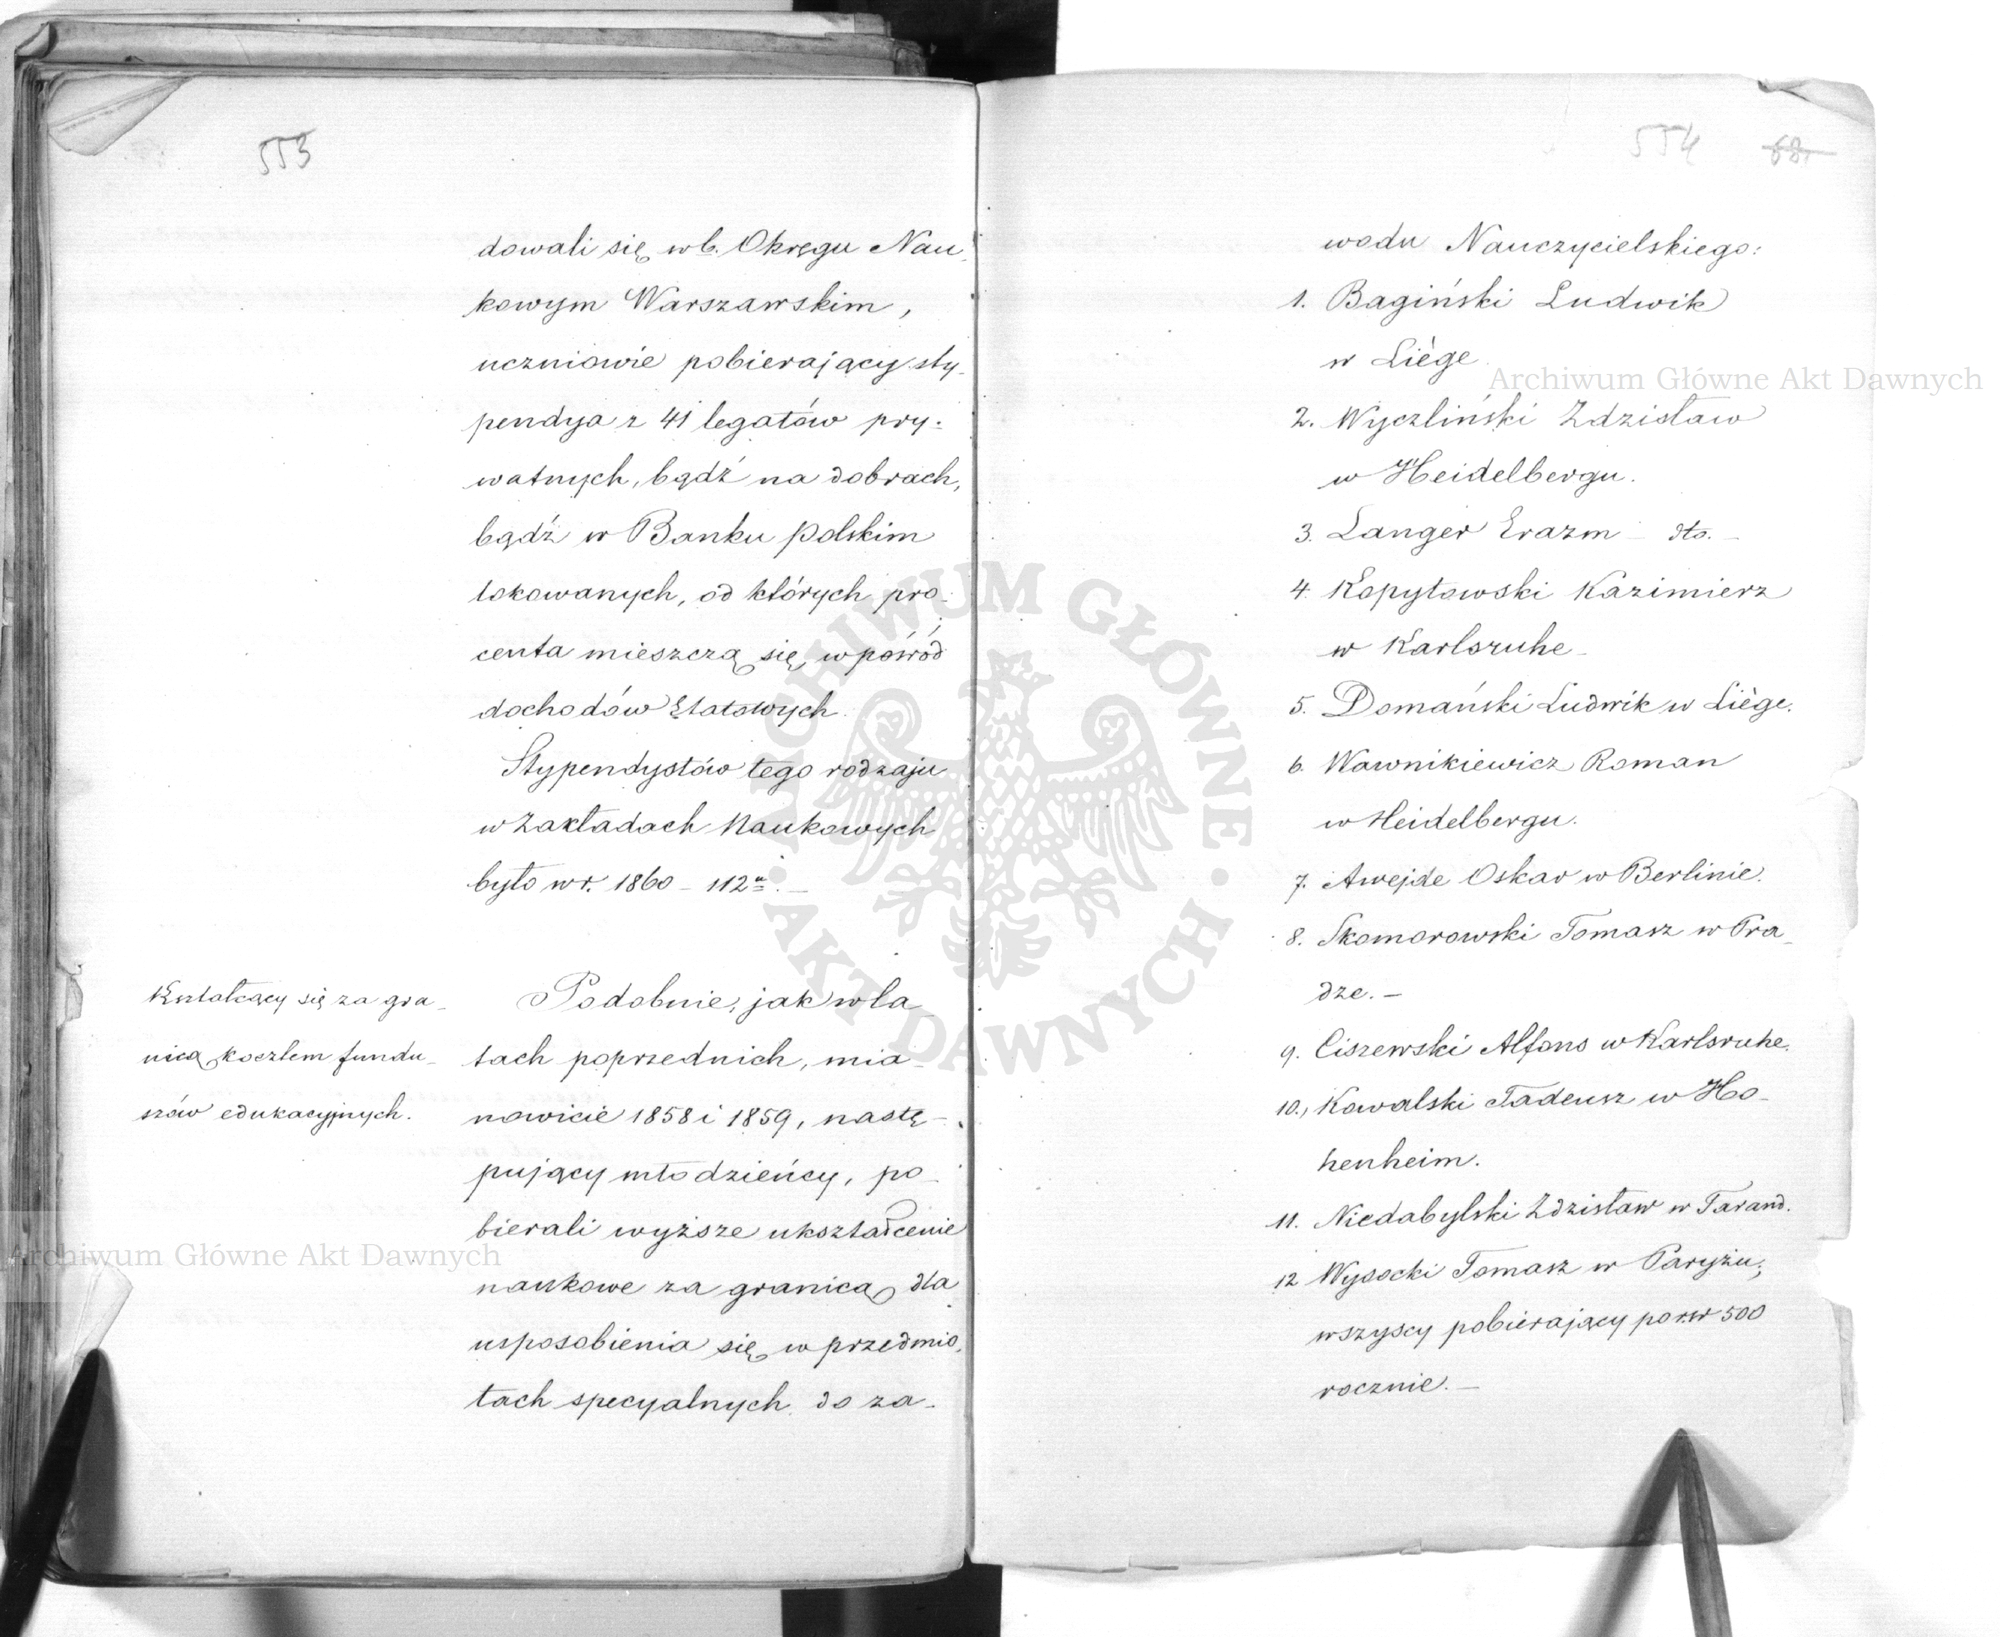 553
dowali się w b. Okręgu Nau-
kowym Warszawskim,
uczniowie pobierający sty-
pendya z 41 legatów pry-
watnych, bądź na dobrach,
bądź w Banku polskim
lokowanych, od których pro-
centa mieszczą się, wpośród
dochodów Etatowych.
Stypendystów tego rodzaju
w Zakładach Naukowych
było w r. 1860 – 112u. –
Kształcący się za gra-
nicą kosztem fundu-
szów edukacyjnych.
Podobnie, jak w la-
tach poprzednich, mia-
nowicie 1858 i 1859, nastę-
pujący młodzieńcy, po-
bierali wyższe ukształcenie
naukowe za granicą, dla
usposobienia się w przedmio-
tach specyalnych do za-
554 68.
wodu Nauczycielskiego:
1. Bagiński Ludwik
w Liège
2. Wyczliński Zdzisław
w Heidelbergu.
3. Langer Erazm – dto. –
4. Kopytowski Kazimierz
w Karlsruhe –
5. Domański Ludwik w Liège.
6. Wawnikiewicz Roman
w Heidelbergu.
7. Awejde Oskar w Berlinie.
8. Skomorowski Tomasz w Pra-
dze. –
9. Ciszewski Alfons w Karlsruhe.
10., Kowalski Tadeusz w Ho-
henheim.
11. Niedabylski Zdzisław w Tarand.
12 Wysocki Tomasz w Paryżu;
wszyscy pobierający po rsr 500
rocznie. –
Archiwum Główne Akt Dawnych
Archiwum Główne Akt Dawnych
ARCHIWUM GŁÓWNE · AKT DAWNYCH ·